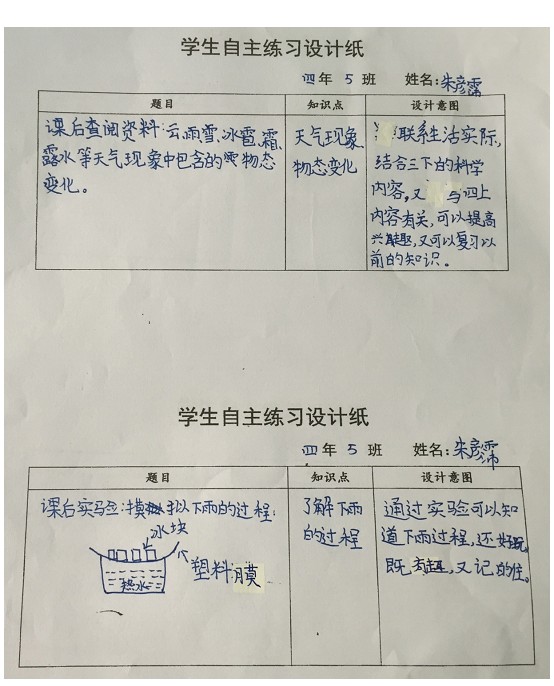 学生自主练习设计纸
四年 5 班 姓名:朱彦霈
题目 知识点 设计意图
课后查阅资料:云、雨雪、冰雹、霜、
露水等天气现象中包含的物态
变化。
天气现象
物态变化
联系生活实际,
结合三下的科学
内容,又与四上
内容有关,可以提高
兴趣,又可以复习以
前的知识。
学生自主练习设计纸
四年 5 班 姓名:朱彦霈
题目 知识点 设计意图
课后实验:模拟下雨的过程:
冰块
塑料膜
热水
了解下雨
的过程
通过实验可以知
道下雨过程,还好玩,
既有趣,又记的住。